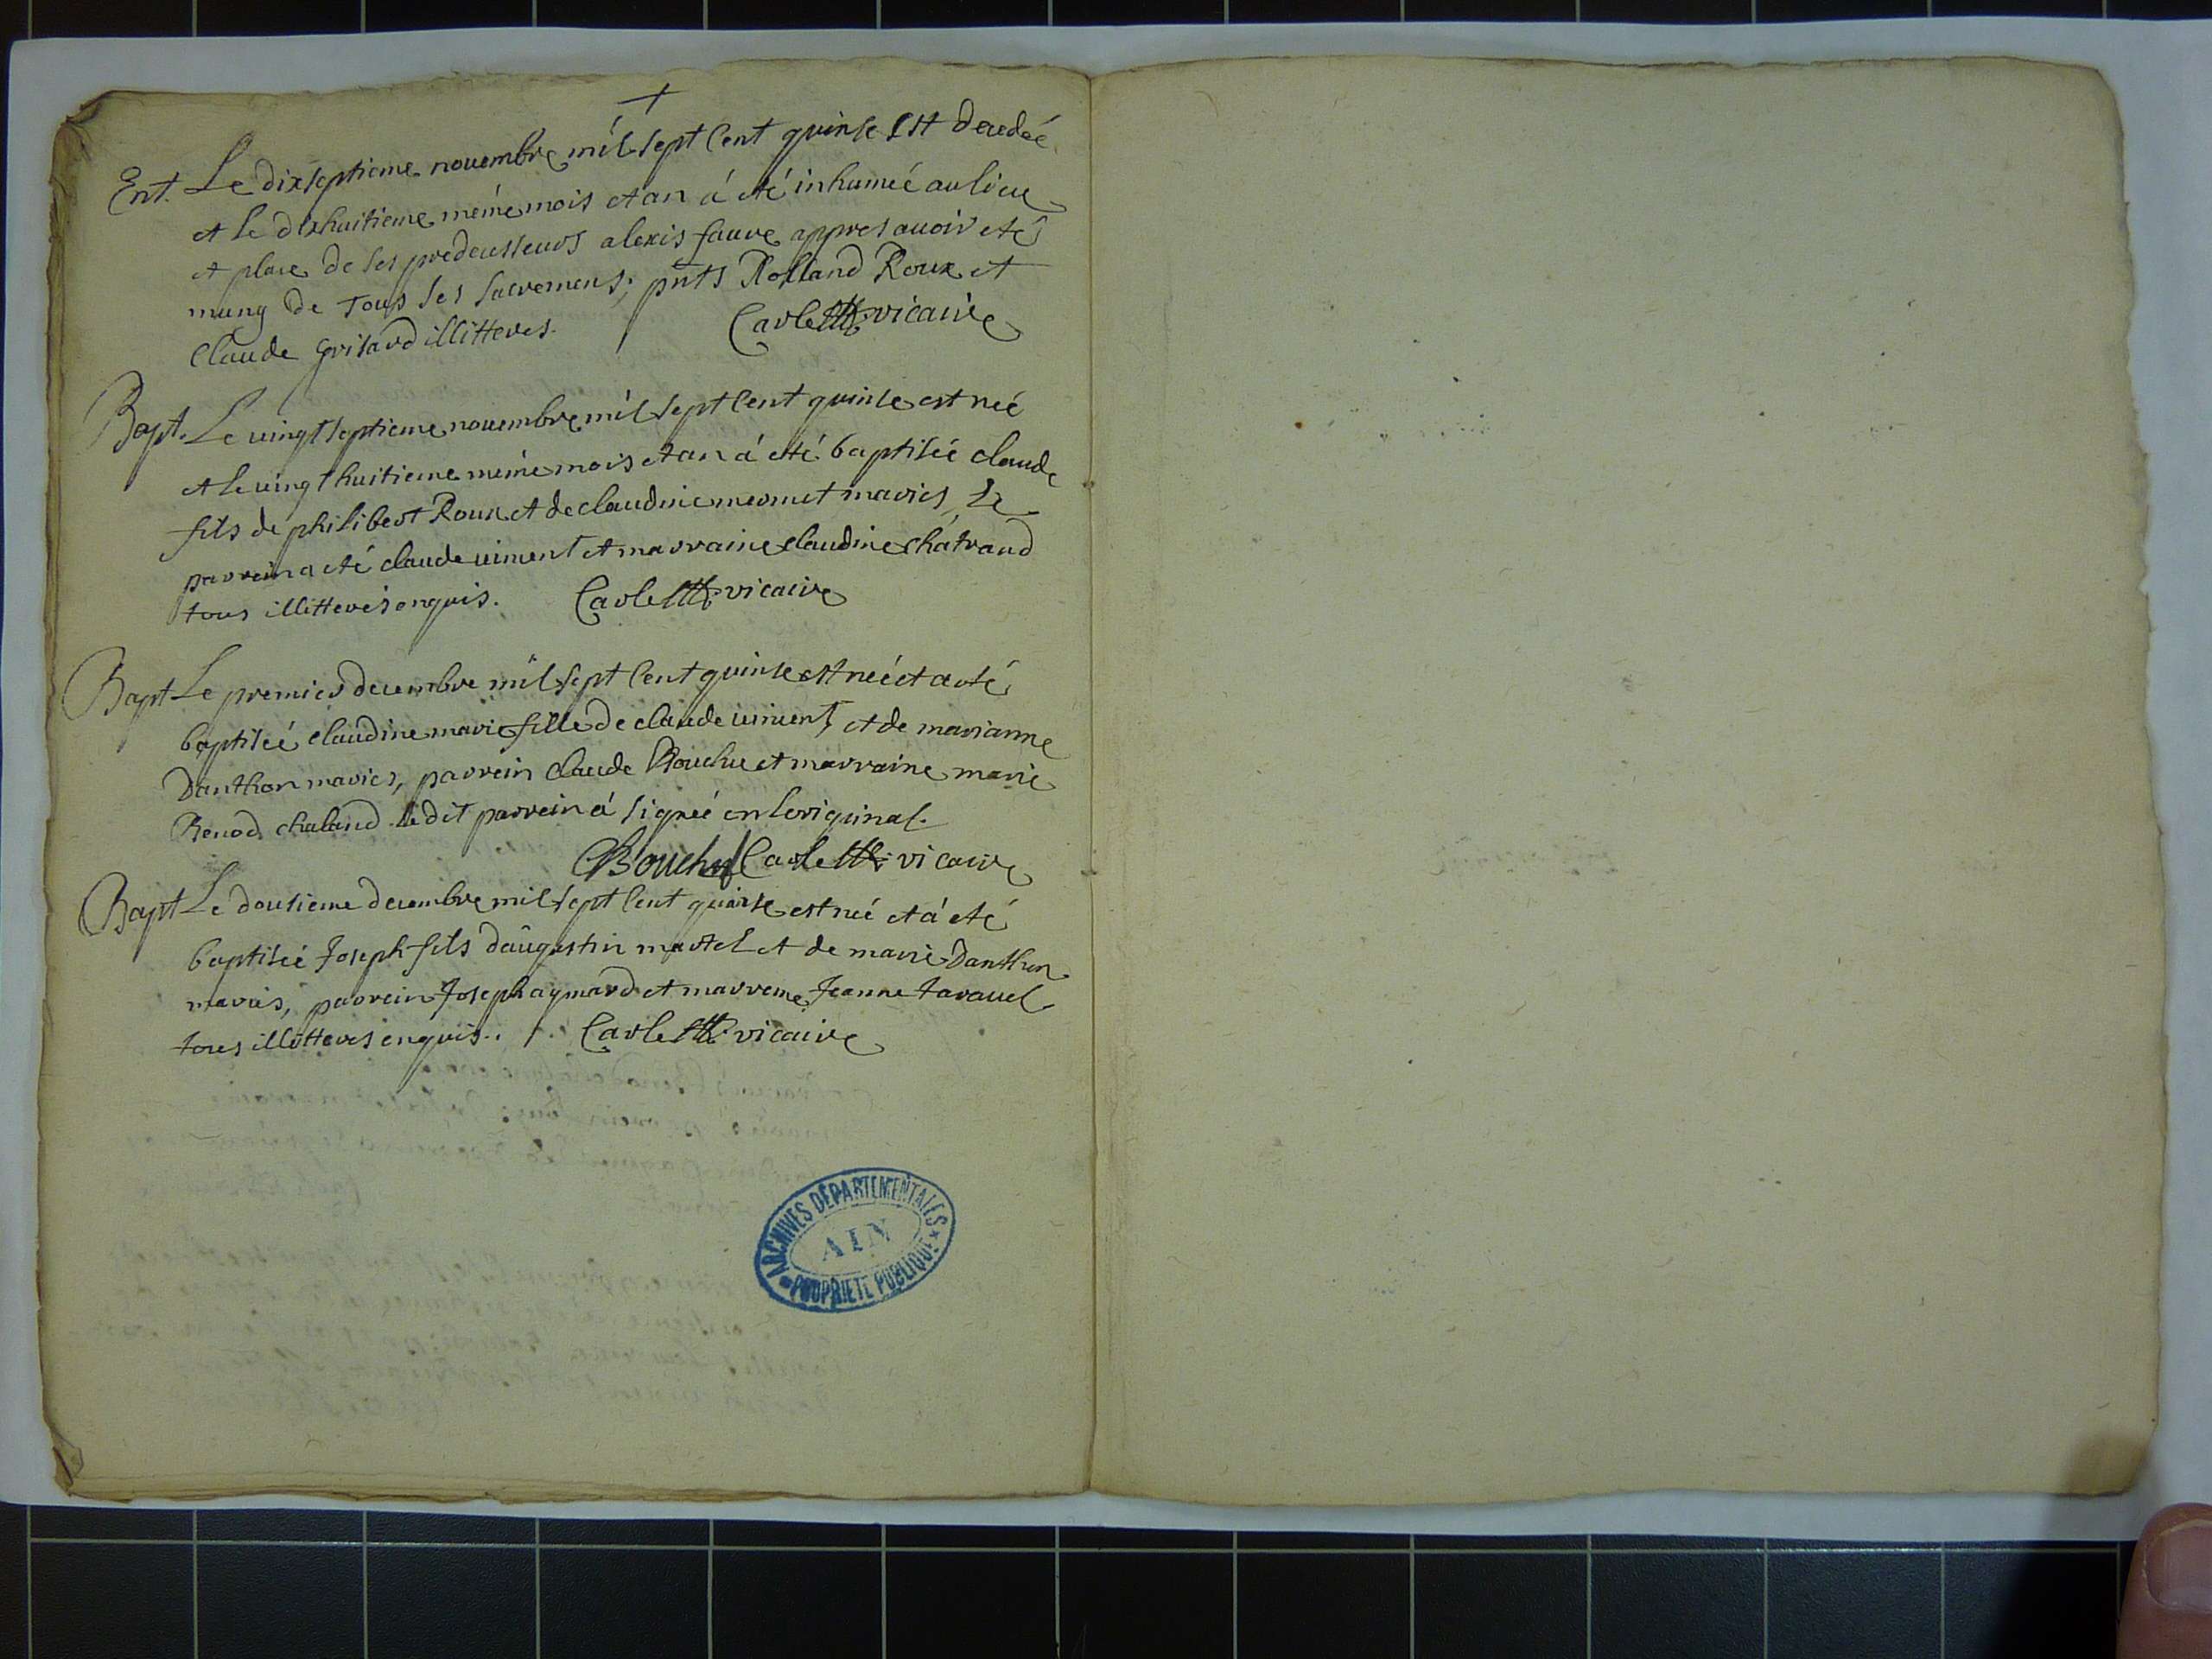 Ent. Le dixseptieme novembre mil sept cent quinse est decedeé
et le dixhuitieme méme mois et an á eté inhumeé au lieu
et place de ses predecesseurs alexis fauve appres avoir eté
muny de tous ses sacremens; pnts Rolland Roux et
Claude Grisard illitteres. Carle vicaire
Bapt. Le vingt septieme novembre mil sept cent quinse est neé
et le vingt huitieme méme mois et an á eté baptiseé claude
fils de philibert Roux et de claudine mermet maries, Le
parrein a eté claude viment et marraine claudine chátrand
tous illitteres enquis. Carle vicaire
Bapt Le premier decembre mil sept cent quinse est neé et a eté
baptiseé claudine marie fille de claude viment et de marianne
Danthon maries, parrein claude Bouchu et marraine marie
Renod chaland ledit parrein á signeé en Loriginal.
Bouchu Carle vicaire
Bapt Le dousieme decembre mil sept cent quinse est neé et á eté
baptiseé Joseph fils daugustin martel et de marie Danthon
maries, parrein Joseph aymard et marreine Jeanne Taravel
tous illitteres enquis. Carle vicaire
ARCHIVES DÉPARTEMENTALES
AIN
PROPRIÉTÉ PUBLIQUE